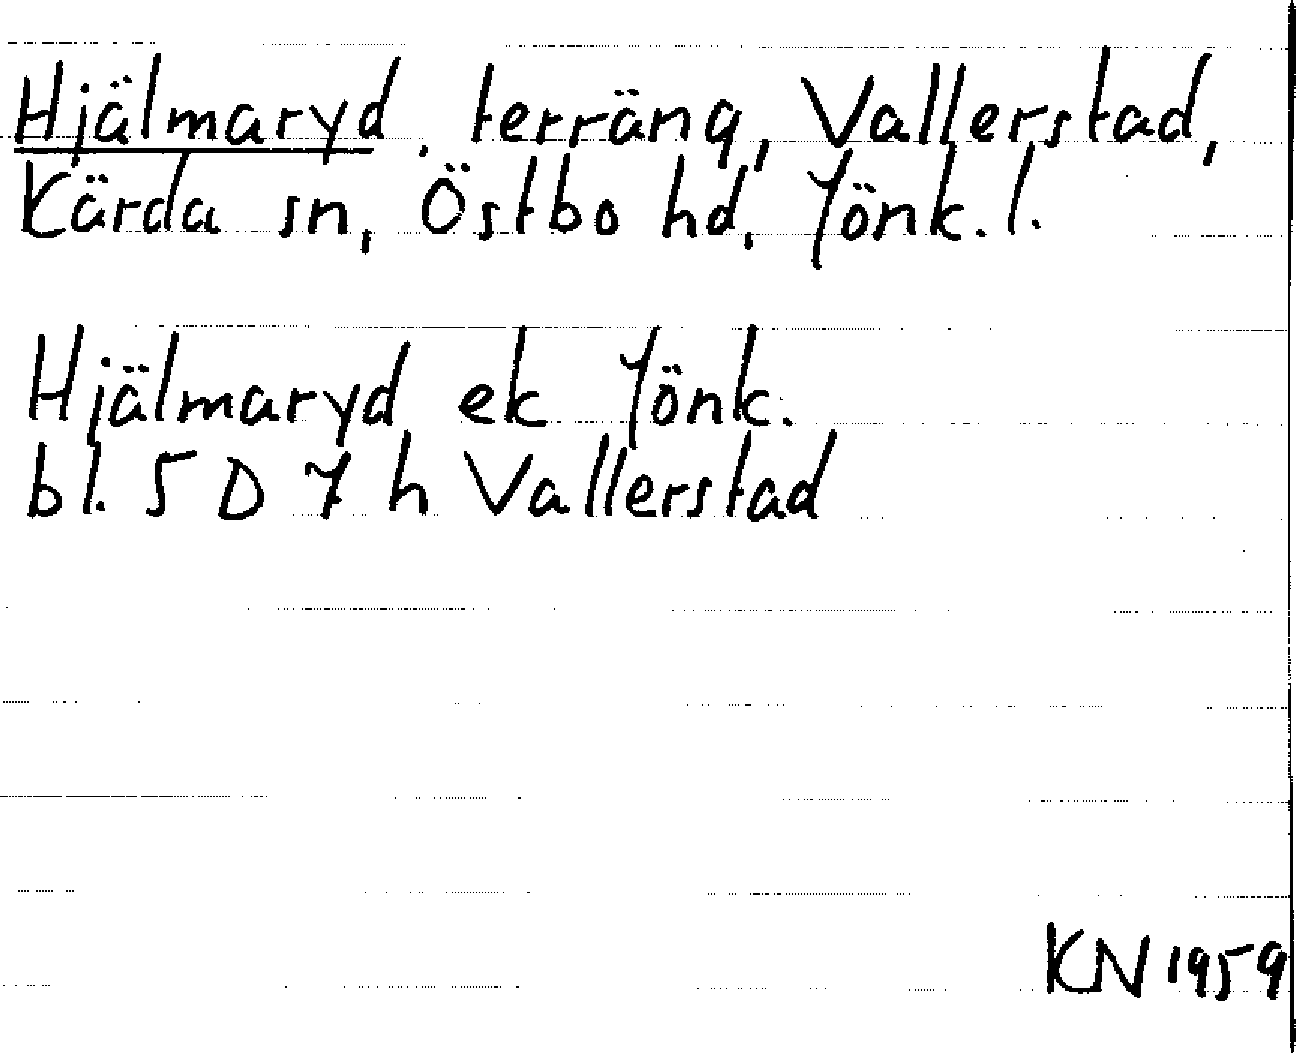 Hjälmaryd, terräng, Vallerstad,
Kärda sn, Östbo hd, Jönk. l.
Hjälmaryd ek Jönk.
bl. 5 D 7 h Vallerstad
KN 1959